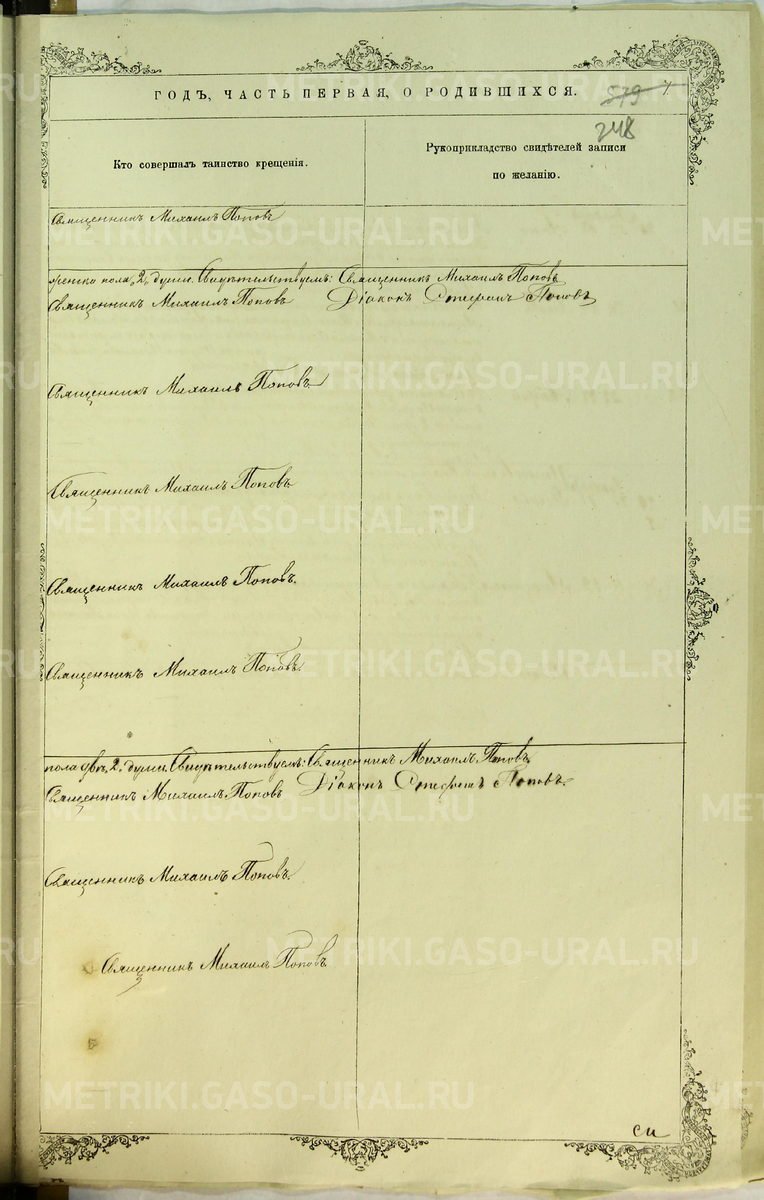 ГОДЪ, ЧАСТЬ ПЕРВАЯ, О РОДИВШИХСЯ.
579
248
Кто совершалъ таинство крещенія.
Рукоприкладство свидѣтелей записи
по желанію.
Священникъ Михаилъ Поповъ
женска пола „2„ души. Свидѣтельствуемъ: Священникъ Михаилъ Поповъ
Священникъ Михаилъ Поповъ Діаконъ Стефанъ Поповъ
Священникъ Михаилъ Поповъ
Священникъ Михаилъ Поповъ
Священникъ Михаилъ Поповъ.
Священникъ Михаилъ Поповъ.
пола двѣ 2. души. Свидѣтельствуемъ: Священникъ Михаилъ Поповъ
Священникъ Михаилъ Поповъ Діаконъ Стефанъ Поповъ.
Священникъ Михаилъ Поповъ.
Священникъ Михаилъ Поповъ
си
METRIKI.GASO-URAL.RU